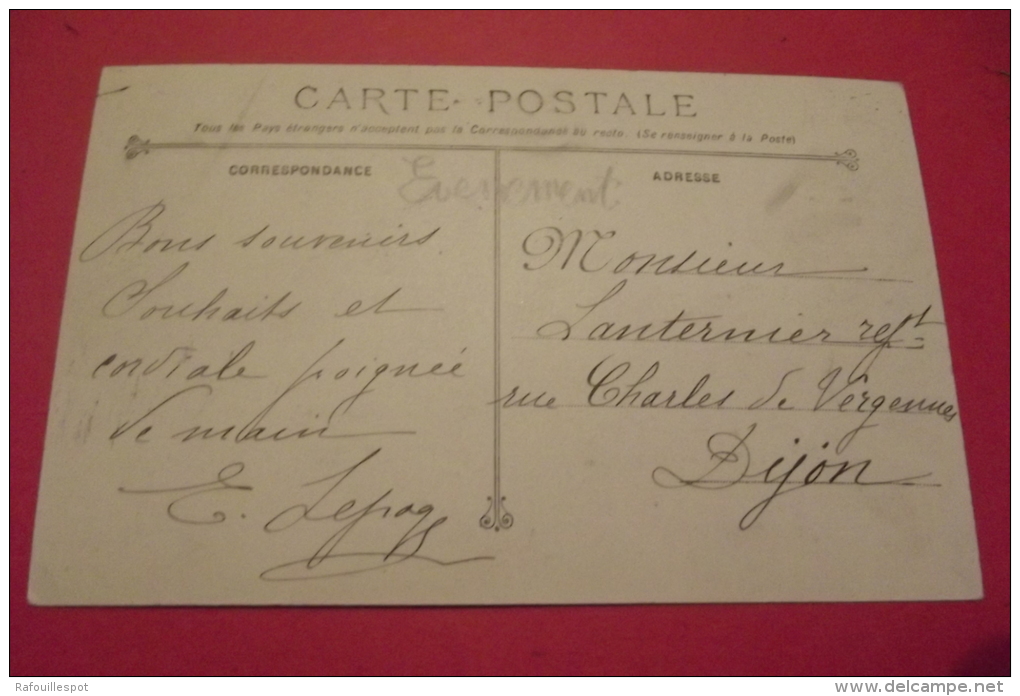 CARTE POSTALE
Tous les Pays étrangers n'acceptent pas la Correspondance au recto. (Se renseigner à la Poste)
CORRESPONDANCE
Evenement
ADRESSE
Bons souvenirs
Souhaits et
cordiale poignée
de main
E.
Monsieur
Lanternier
rue Charles de Vergennes
Dijon
Rafouillespot
www.delcampe.net